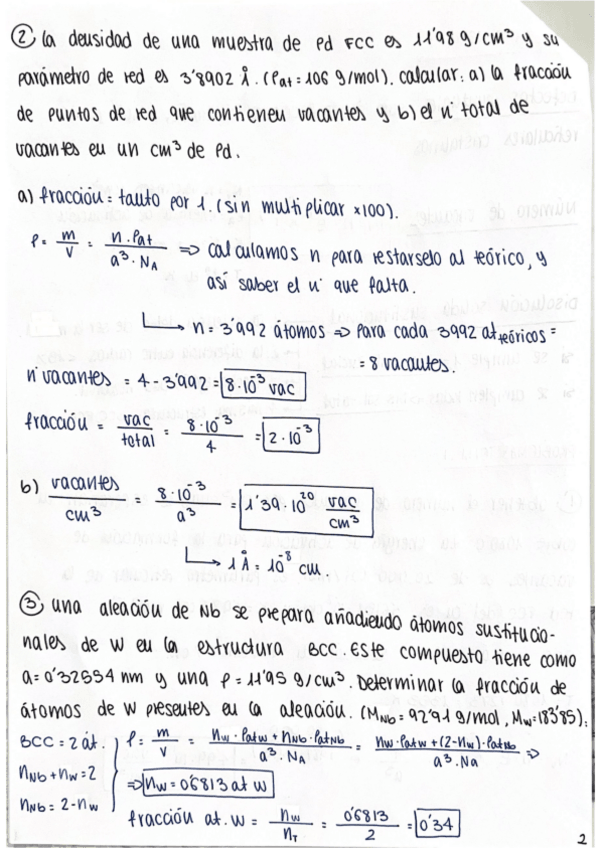 ② La densidad de una muestra de Pd FCC es 11'98 g/cm³ y su
parámetro de red es 3'8902 Å. (Pat = 106 g/mol). calcular: a) la fracción
de puntos de red que contienen vacantes y b) el nº total de
vacantes en un cm³ de Pd.
a) fracción = tanto por 1. (sin multiplicar ×100).
ρ = m/V = n·Pat/a³·NA ⇒ calculamos n para restarselo al teórico, y
así saber el nº que falta.
↳ n = 3'992 átomos ⇒ Para cada 3992 at teóricos =
= 8 vacantes.
nº vacantes = 4 - 3'992 = 8·10⁻³ vac
fracción = vac/total = 8·10⁻³/4 = 2·10⁻³
b) vacantes/cm³ = 8·10⁻³/a³ = 1'39·10²⁰ vac/cm³
↳ 1 Å = 10⁻⁸ cm.
③ una aleación de Nb se prepara añadiendo átomos sustitucio-
nales de W en la estructura BCC. Este compuesto tiene como
a = 0'32554 nm y una ρ = 11'95 g/cm³. Determinar la fracción de
átomos de W presentes en la aleación. (MNb = 92'91 g/mol, Mw = 183'85).
BCC = 2 at.
nNb + nw = 2
nNb = 2 - nw
ρ = m/V = nw·Patw + nNb·PatNb/a³·NA = nw·Patw + (2-nw)·PatNb/a³·Na ⇒
⇒ nw = 0'6813 at w
fracción at. W = nw/nT = 0'6813/2 = 0'34
2